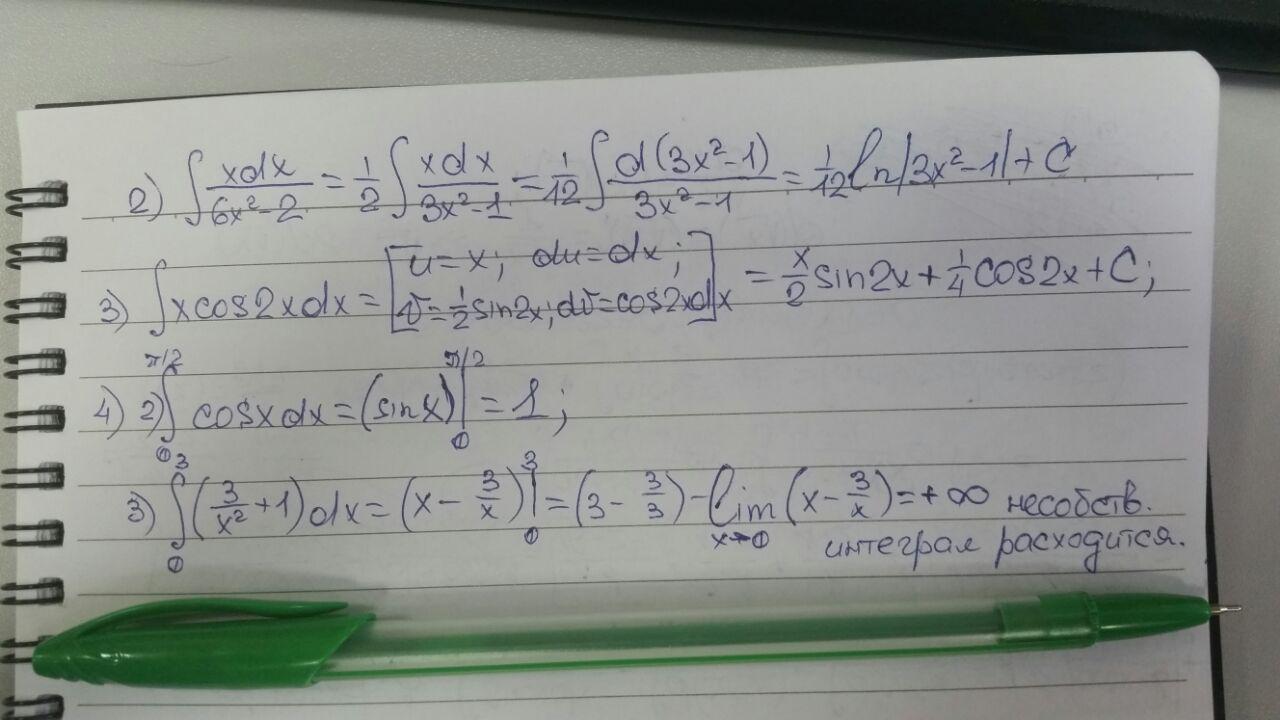 2) ∫ xdx/(6x²-2) = 1/2 ∫ xdx/(3x²-1) = 1/12 ∫ d(3x²-1)/(3x²-1) = 1/12 ln|3x²-1| + C
3) ∫ x cos2xdx = [u=x; du=dx; v=1/2 sin2x; dv=cos2xdx] = x/2 sin2x + 1/4 cos2x + C;
4) 2) ∫₀^(π/2) cosxdx = (sinx)|₀^(π/2) = 1;
3) ∫₀³ (3/x² + 1)dx = (x - 3/x)|₀³ = (3 - 3/3) - lim x→0 (x - 3/x) = +∞ несобств.
интеграл расходится.